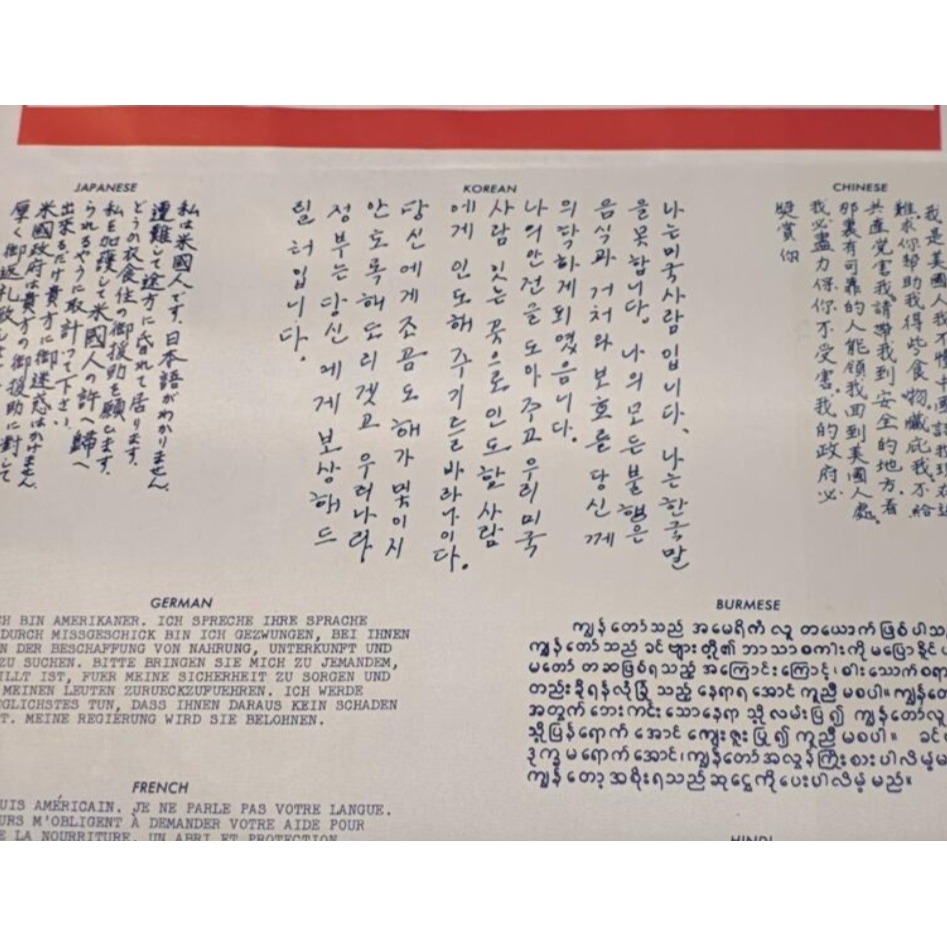 JAPANESE
私は米国人です。日本語がわかりません。
遭難して途方に昏れて居ります。
どうか衣食住の御援助を願ひます。
私を加護して米國人の許へ歸へ
られるやうに取計って下さい。
出來るだけ貴方に御迷惑はかけません。
米國政府は貴方の御援助に対して
厚く御返礼致しま
KOREAN
나는 미국 사람입니다. 나는 한국말
을 못합니다. 나의 모든 불행은
음식과 거처와 보호를 당신께
의탁하게 되였음니다.
나의 안전을 도아주고 우리 미국
사람 잇는 곳으로 인도할 사람
에게 인도해 주기를 바라나이다.
당신에게 조곰도 해가 및이지
안토록 해드리겟고 우리나라
정부는 당신게 보상해 드
릴 터입니다.
CHINESE
我是美國人我不懂中國話我
難.求你幫助我得些食物藏庇我.不給
共產党害我.請帶我到安全的地方.看
那裏有可靠的人能領我回到美國人處.
我必盡力保你不受害.我的政府必
獎賞你
GERMAN
CH BIN AMERIKANER. ICH SPRECHE IHRE SPRACHE
DURCH MISSGESCHICK BIN ICH GEZWUNGEN, BEI IHNEN
N DER BESCHAFFUNG VON NAHRUNG, UNTERKUNFT UND
ZU SUCHEN. BITTE BRINGEN SIE MICH ZU JEMANDEM,
ILLT IST, FUER MEINE SICHERHEIT ZU SORGEN UND
MEINEN LEUTEN ZURUECKZUFUEHREN. ICH WERDE
EGLICHSTES TUN, DASS IHNEN DARAUS KEIN SCHADEN
T. MEINE REGIERUNG WIRD SIE BELOHNEN.
BURMESE
ကျွန်တော်သည် အမေရိကံ လူ တယောက် ဖြစ်ပါသ
ကျွန်တော်သည် ခင်ဗျားတို့၏ ဘာသာစကါးကို မပြောနိုင်ပ
မတော် တဆဖြစ်ရသည့် အကြောင်းကြောင့်၊ စါးသောက်စရာ
တည်းခိုရန်လုံခြုံ သည့် နေရာရအောင် ကူညီ မစပါ။ ကျွန်တေ
အတွက် ဘေးကင်း သောနေရာ သို့ လမ်းပြ၍ ကျွန်တော်လူ
သို့ပြန်ရောက် အောင် ကျေးဇူးပြု၍ ကူညီ မစပါ။ ခင်ဗ
ဒုက္ခ မရောက်အောင်၊ ကျွန်တော်အလွန်ကြိုးစားပါလိမ့်မ
ကျွန်တော့ အစိုးရသည် ဆုငွေကို ပေးပါလိမ့် မည်။
FRENCH
UIS AMÉRICAIN. JE NE PARLE PAS VOTRE LANGUE.
URS M'OBLIGENT À DEMANDER VOTRE AIDE POUR
E LA NOURRITURE, UN ABRI ET PROTECTION
HINDI